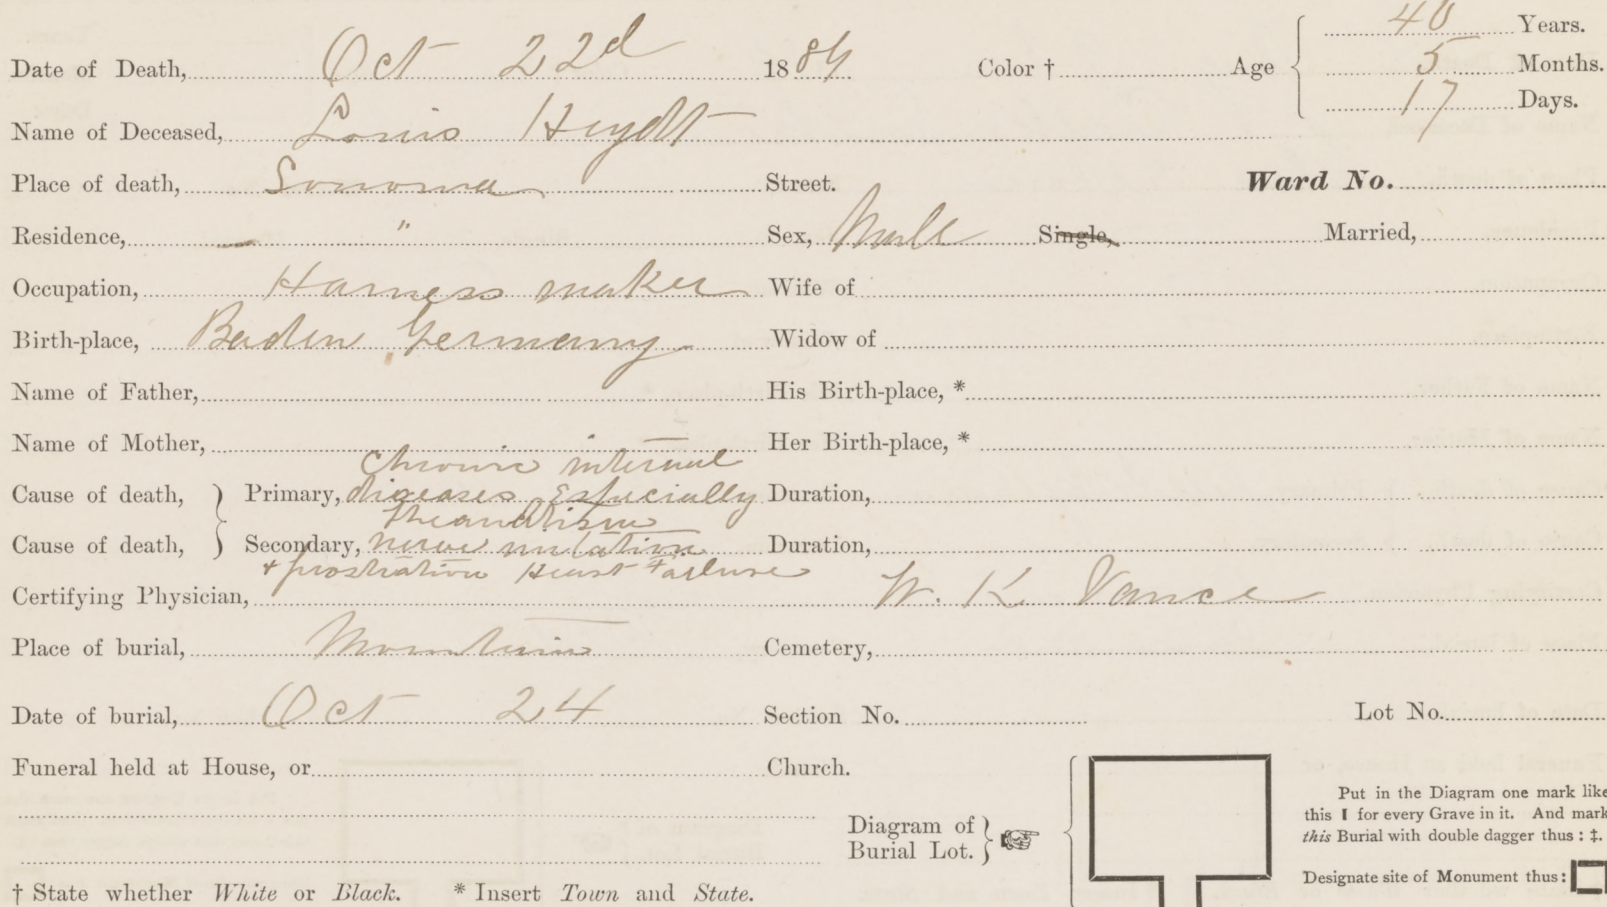 Date of Death, Oct 22d 1889 Color † Age { 40 Years.
5 Months.
17 Days.
Name of Deceased, Louis Heydt
Place of death, Sonoma Street. Ward No.
Residence, " Sex, Male Single, Married,
Occupation, Harness maker Wife of
Birth-place, Baden Germany Widow of
Name of Father, His Birth-place, *
Name of Mother, Her Birth-place, *
Chronic internal
Cause of death, } Primary, diseases Especially Duration,
Rheumatism
Cause of death, } Secondary, nerve irritation Duration,
+ prostration Heart Failure
Certifying Physician, W. K Vance
Place of burial, Mountain Cemetery,
Date of burial, Oct 24 Section No. Lot No.
Funeral held at House, or Church.
Diagram of
Burial Lot.
Put in the Diagram one mark like
this I for every Grave in it. And mark
this Burial with double dagger thus : ‡.
Designate site of Monument thus :
† State whether White or Black. * Insert Town and State.